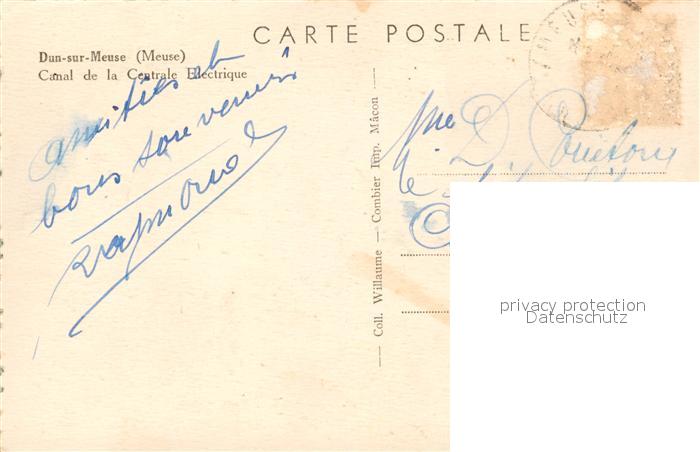 CARTE POSTALE
Dun-sur-Meuse (Meuse)
Canal de la Centrale Electrique
amitiés et
bons souvenirs
Raymonde
Coll. Willaume — Combier Imp. Mâcon
Mme D.
privacy protection
Datenschutz